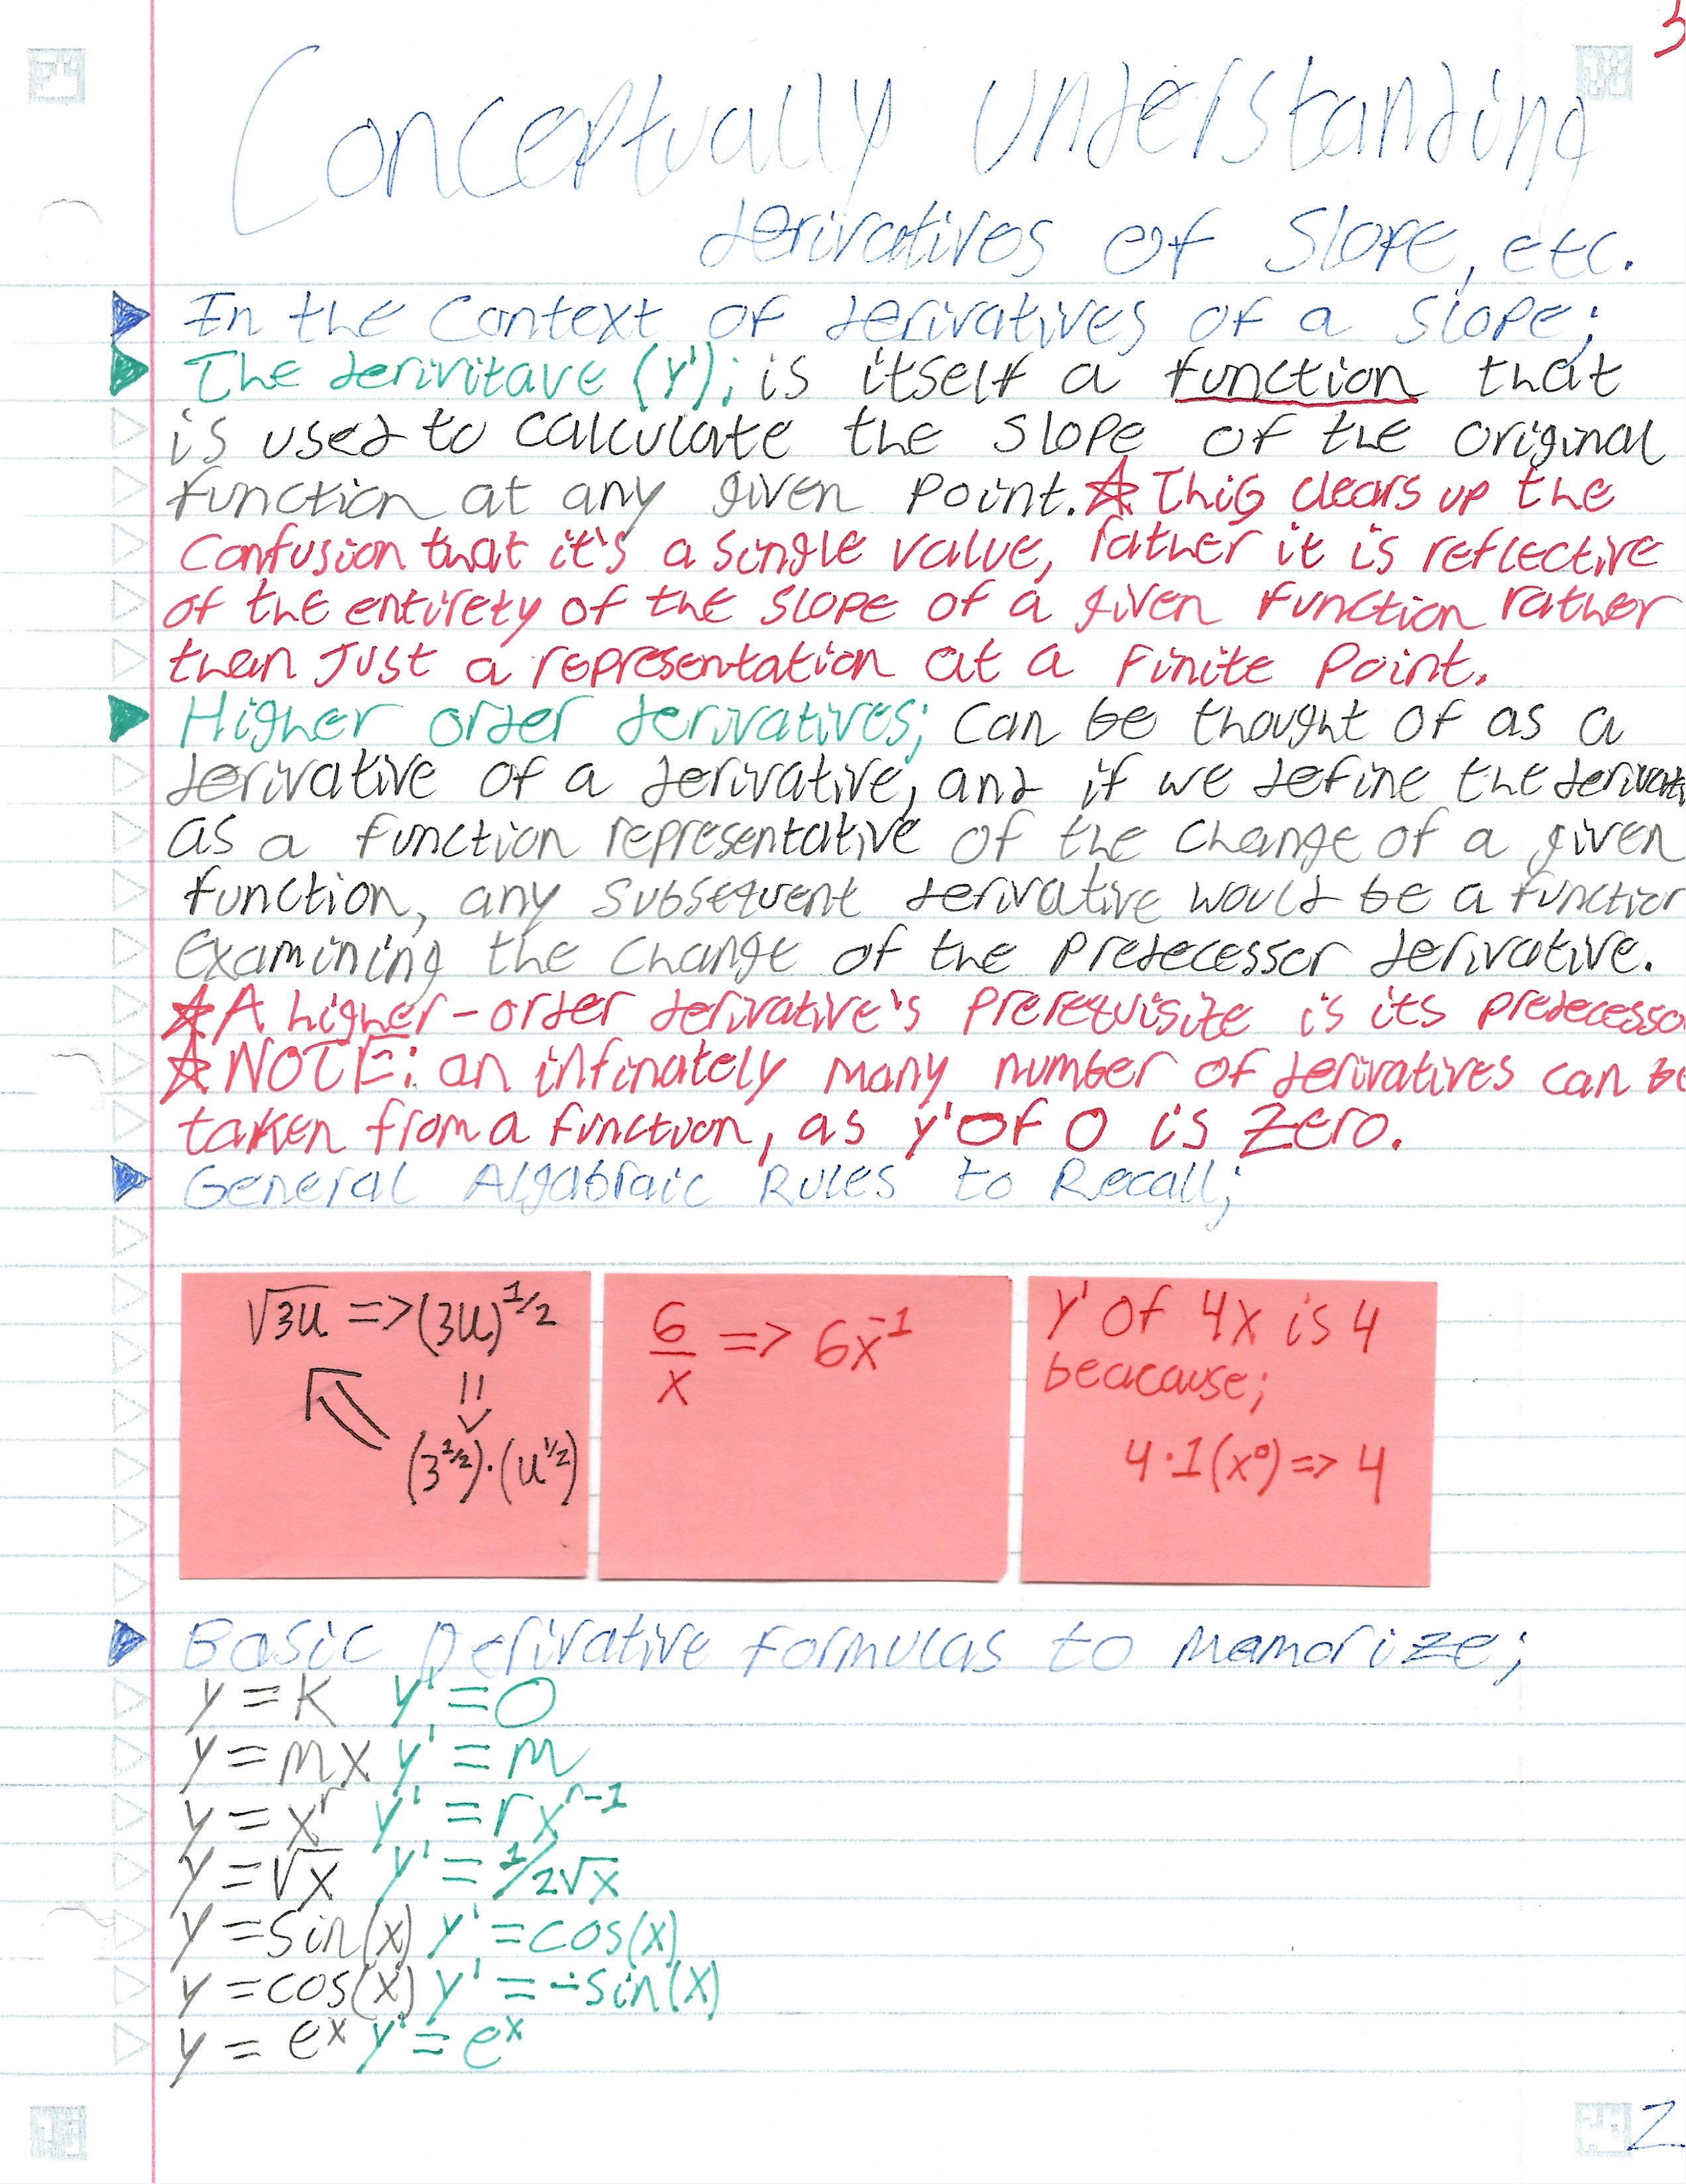 3
Conceptually Understanding
derivatives of Slope, etc.
In the Context of derivatives of a slope;
The derivitave (y'); is itself a function that
is used to calculate the slope of the original
function at any given point. ☆ This clears up the
confusion that it's a single value, rather it is reflective
of the entirety of the slope of a given function rather
than Just a representation at a Finite Point.
Higher order derivatives; can be thought of as a
derivative of a derivative, and if we define the derivati
as a function representative of the change of a given
function, any subsequent derivative would be a function
examining the change of the predecesser derivative.
☆ A higher-order derivative's prerequisite is its predecesso
☆ NOTE: an infinately many number of derivatives can be
taken from a function, as y' of 0 is zero.
General Algabraic Rules to Recall;
√3u => (3u)^1/2
(3^1/2)·(u^1/2)
6/x => 6x^-1
y' of 4x is 4
beacause;
4·1(x^0) => 4
Basic Derivative Formulas to Mamorize;
y = k y' = 0
y = mx y' = m
y = x^r y' = rx^r-1
y = √x y' = 1/2√x
y = sin(x) y' = cos(x)
y = cos(x) y' = -sin(x)
y = e^x y' = e^x
2